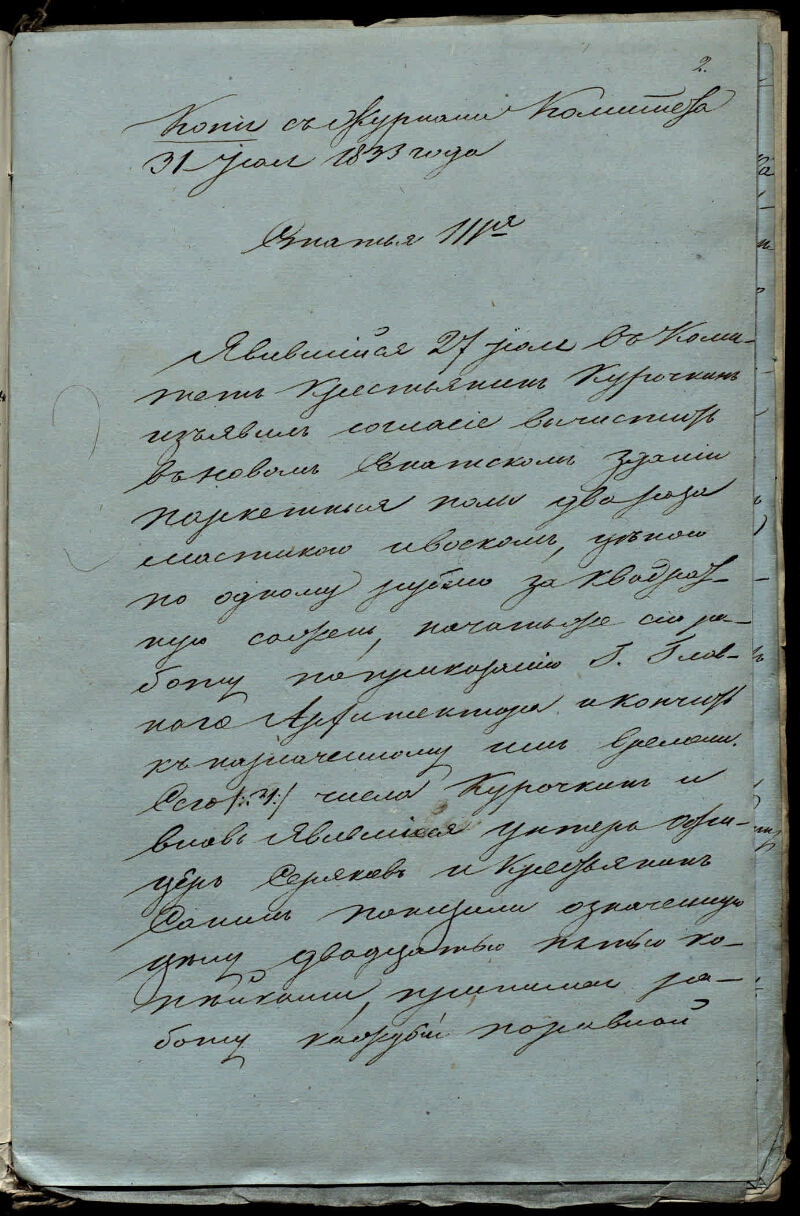 2.
Копiи съ Журнала Комитета
31 Iюля 1833 года
Статья III<sup>я</sup>
Явившiйся 27 iюля въ Коми-
тетъ Крестьянинъ Курочкинъ
изъявилъ согласiе вычистить
въ новомъ Сенатскомъ зданiи
паркетныя полы два раза
мастикою и воскомъ, цѣною
по одному рублю за квадрат-
ную сажень, начать же сiю ра-
боту по приказанiю Г. Глав-
наго Архитектора и кончить
къ назначенному имъ времени.
Сего /:31:/ числа Курочкинъ и
вновь явившiйся унтеръ офи-
церъ Серяковъ и Крестьянинъ
понизили означенную
цѣну двадцатью пятью ко-
пѣйками, принимая ра-
боту каждый по равной